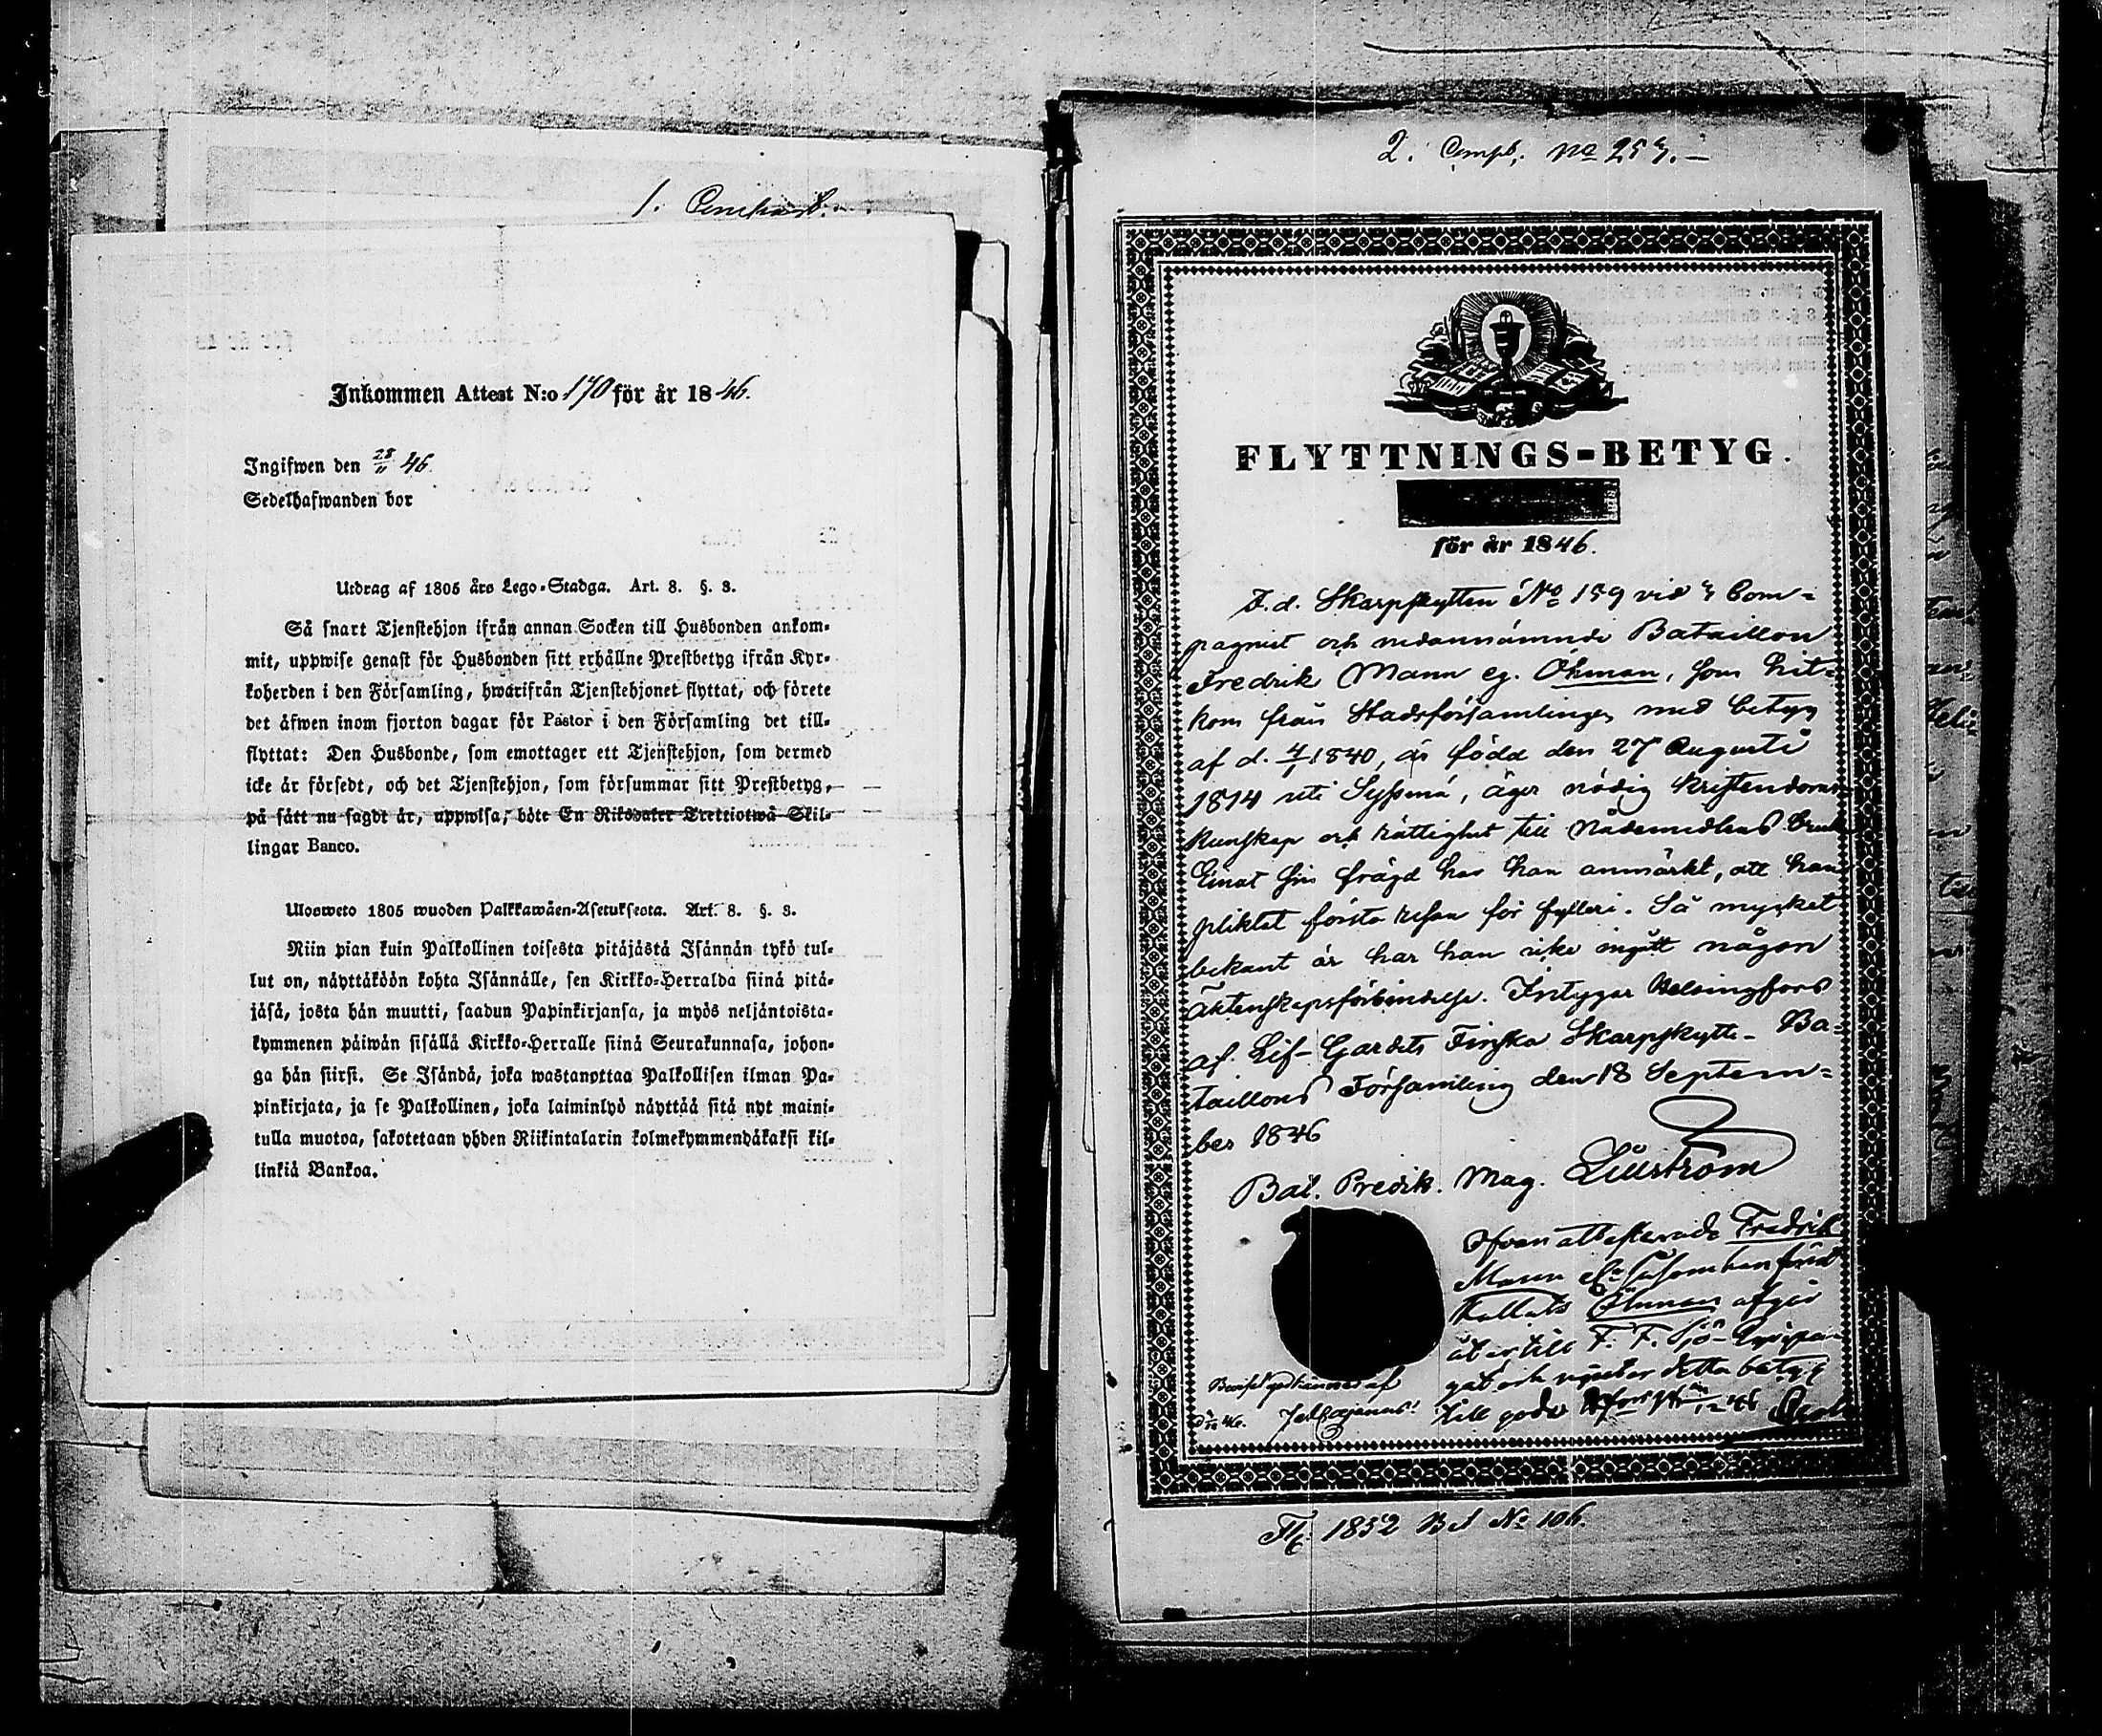 Inkommen Attest N:o 170 för år 1846.
Ingifwen den 28/11 46.
Sedelhafwanden bor
Utdrag af 1805 års Lego-Stadga. Art. 8. §. 3.
Så snart Tjenstehjon ifrån annan Socken till Husbonden ankom-
mit, uppwise genast för Husbonden sitt erhållne Prestbetyg ifrån Kyr-
koherden i den Församling, hwarifrån Tjenstehjonet flyttat, och förete
det äfwen inom fjorton dagar för Pastor i den Församling det till-
flyttat: Den Husbonde, som emottager ett Tjenstehjon, som dermed
icke är försedt, och det Tjenstehjon, som försummar sitt Prestbetyg,
på sätt nu sagdt är, uppwisa, böte En Riksdaler Trettiotwå Skil-
lingar Banco.
Ulosweto 1805 wuoden Palkkawäen-Asetuksesta. Art. 8. §. 3.
Niin pian kuin Palkollinen toisesta pitäjästä Isännän tykö tul-
lut on, näyttäköön kohta Isännälle, sen Kirkko-Herralda siinä pitä-
jäsä, josta hän muutti, saadun Papinkirjansa, ja myös neljäntoista-
kymmenen päiwän sisällä Kirkko-Herralle siinä Seurakunnasa, johon-
ga hän siirsi. Se Isändä, joka wastanottaa Palkollisen ilman Pa-
pinkirjata, ja se Palkollinen, joka laiminlyö näyttää sitä nyt maini-
tulla muotoa, sakotetaan yhden Riikintalarin kolmekymmendäkaksi kil-
linkiä Bankoa.
2. Compl. No 257.
FLYTTNINGS-BETYG.
för år 1846.
F.d. Skarpskytten No 159 vid 4 Com-
pagniet och nedannämnde Bataillon
Fredrik Mann eg. Öhman, som hit-
kom från Stadsförsamlingen med betyg
af d. 4/1 1840, är född den 27 Augusti
1814 uti Syssmä, äger nödig kristendoms
kunskap och rättighet till Nådemedlens bruk
Emot hans frägd har han anmärkt, att han
pliktat första resan för fylleri. Så mycket
bekant är har han icke ingått någon
äktenskapsförbindelse. Intygar Helsingfors
af Lif-Gardets Finska Skarpskytte-Ba-
taillons Församling den 18 Septem-
ber 1846
Bat. Predik. Mag. Lillström
Ofvan attesterade Fredrik
Mann som han förut
kallats Öhman afgår
åter till F. F. Sjö-Equipa-
get och njuter detta betyg
till godo
Fl. 1852 Bet No 106.